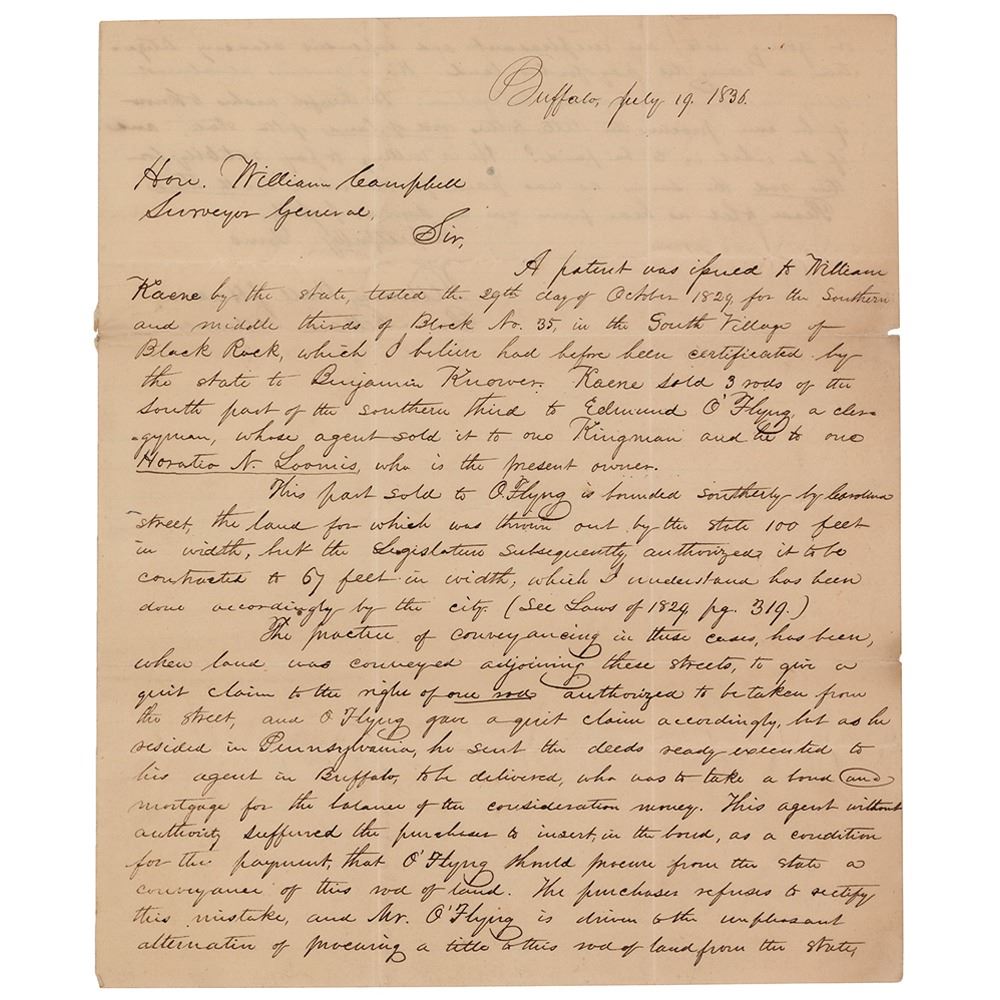 Buffalo, July 19. 1836.
Hon. William Campbell
Surveyor General,
Sir,
A patent was issued to William
Kaene by the state, tested the 29th day of October 1829, for the Southern
and middle thirds of Block No. 35, in the South Village of
Black Rock, which I believe had before been certificated by
the state to Benjamin Knower. Kaene sold 3 rods of the
South part of the southern third to Edmund O'Flyng, a cler=
=gyman, whose agent sold it to one Kingman and he to one
Horatio N. Loomis, who is the present owner.
This part sold to O'Flyng is bounded southerly by Carolina
street, the land for which was thrown out by the state 100 feet
in width, but the Legislature subsequently authorized it to be
contracted to 67 feet in width, which I understand has been
done accordingly by the city. (See Laws of 1829 pg. 319.)
The practice of conveyancing in these cases, has been,
when land was conveyed adjoining these streets, to give a
quit claim to the right of one rod authorized to be taken from
the street, and O'Flyng gave a quit claim accordingly, but as he
resided in Pennsylvania, he sent the deeds ready executed to
his agent in Buffalo, to be delivered, who was to take a bond and
mortgage for the balance of the consideration money. This agent without
authority suffured the purchaser to insert, in the bond, as a condition
for the payment, that O'Flyng should procure from the state a
conveyance of this rod of land. The purchaser refuses to rectify
this mistake, and Mr. O'Flyng is driven to the unpleasant
alternative of procuring a title to this rod of land from the state,